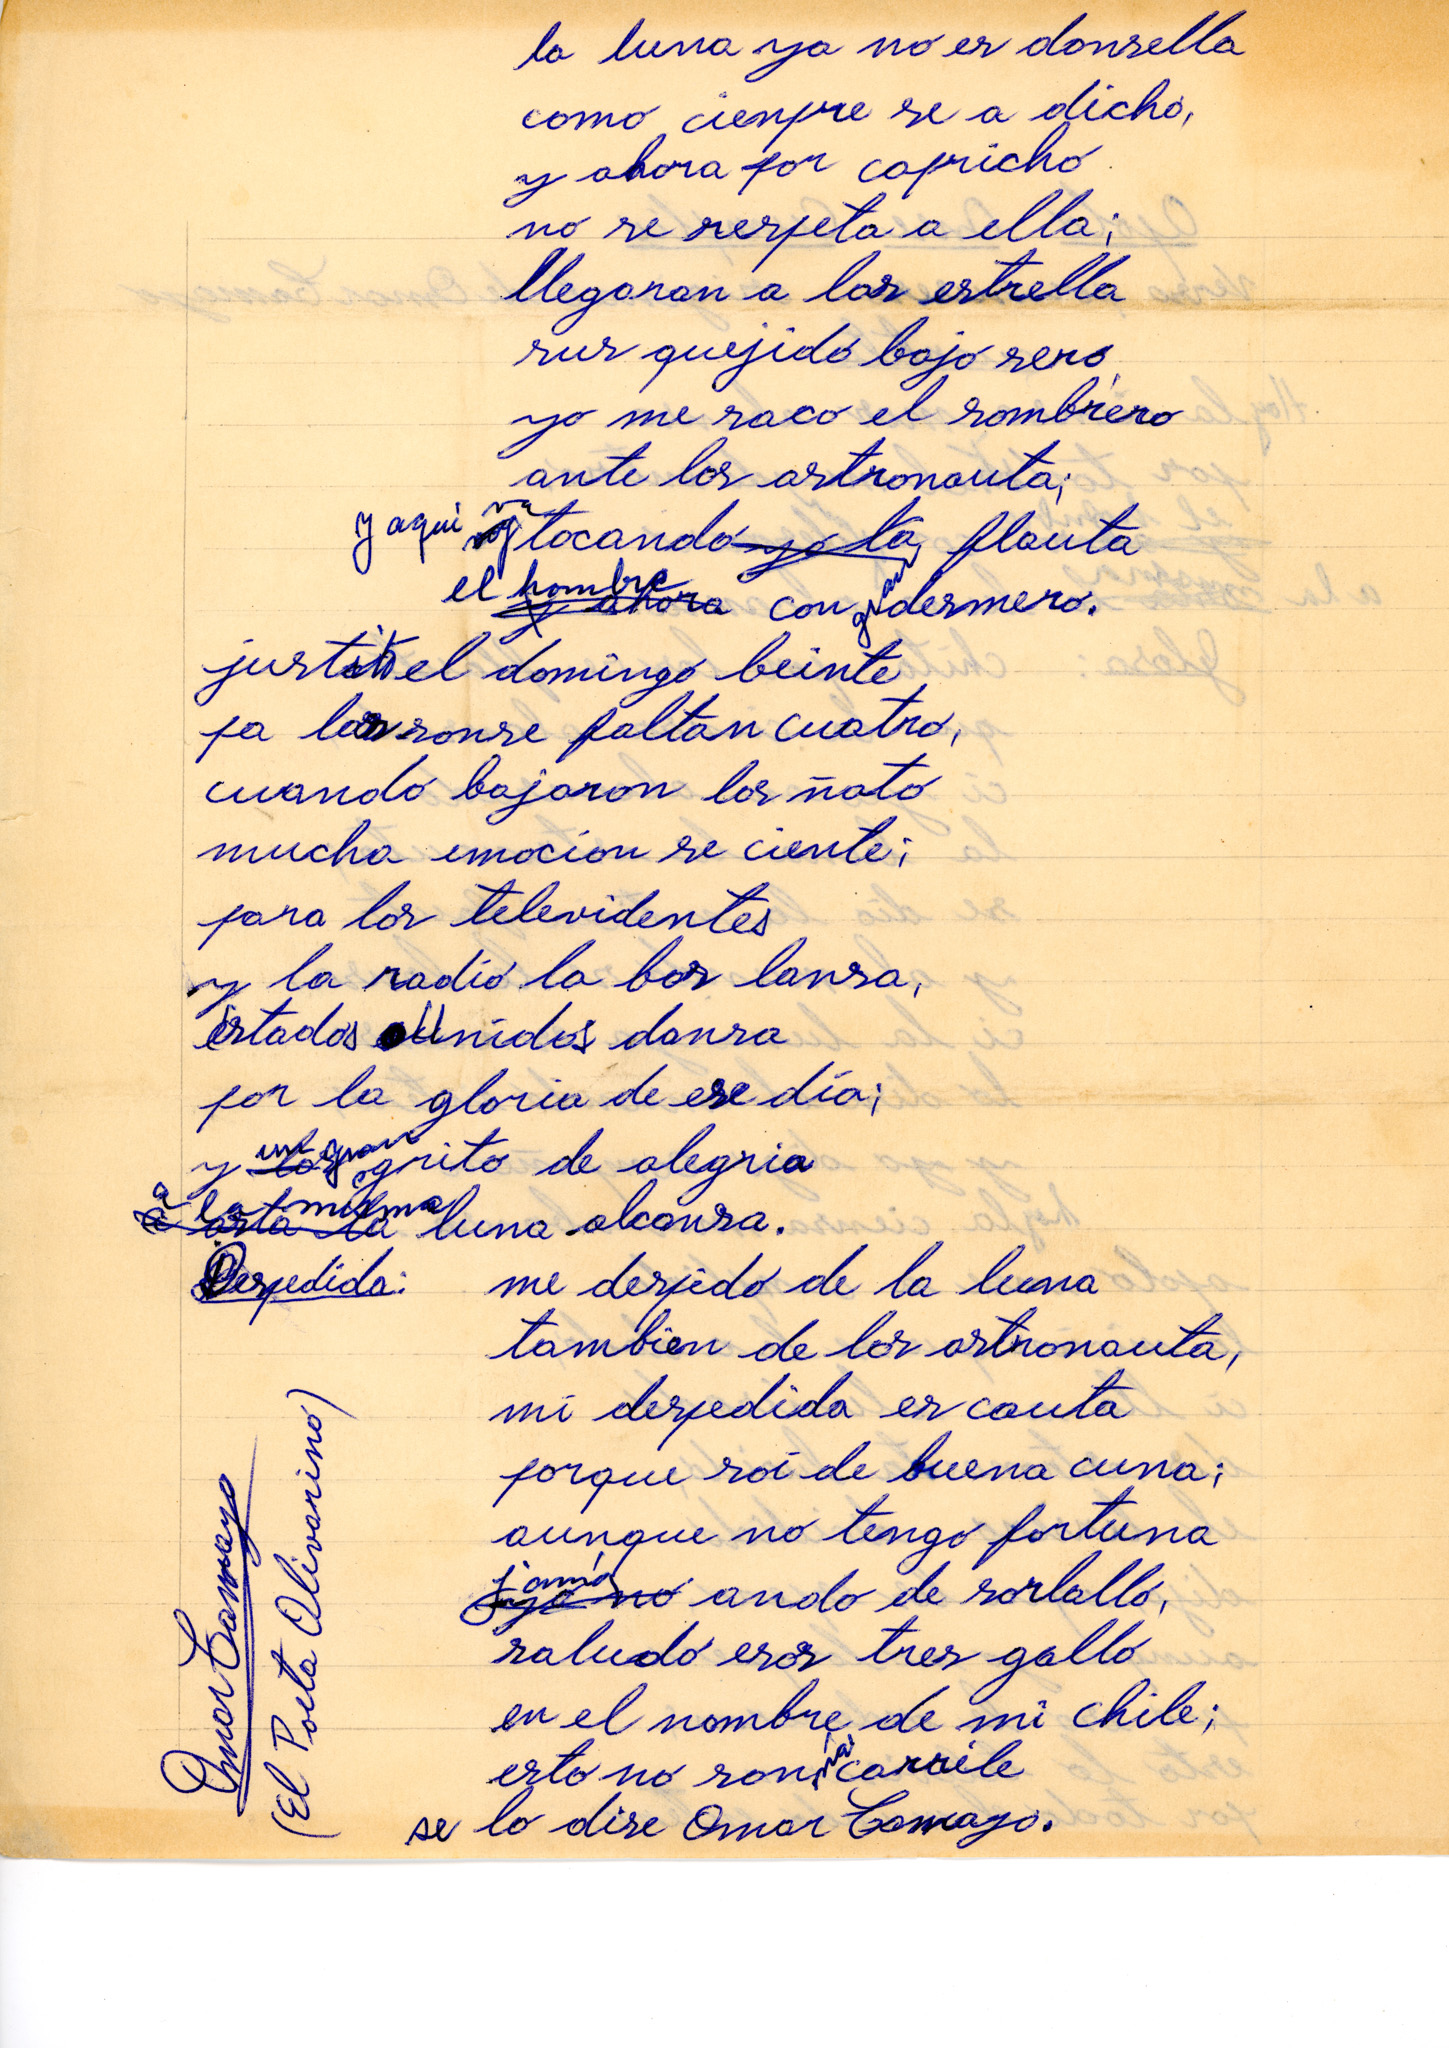 la luna ya no es donsella
como cienpre se a dicho,
y ahora por capricho
no se respeta a ella;
llegaran a las estrella
sus quejido bajo sero,
yo me saco el sombrero
ante los astronauta;
y aqui va tocando yo la flauta
el hombre y ahora con gran desmero.
justito el domingo beinte
pa las sonse faltan cuatro,
cuando bajaron los ñato
mucha emocion se ciente;
para los televidentes
y la radio la bos lansa,
estados unidos dansa
por la gloria de ese día;
y un gran grito de alegria
la misma asta la luna alcansa.
Despedida: me despido de la luna
tambien de los astronauta,
mi despedida es cauta
porque soi de buena cuna;
aunque no tengo fortuna
jamás yo no ando de soslallo,
saludo esos tres gallo
en el nombre de mi chile;
esto no son carrile
se lo dise Omar Camayo.
Omar Camayo
(El Poeta Olivarino)